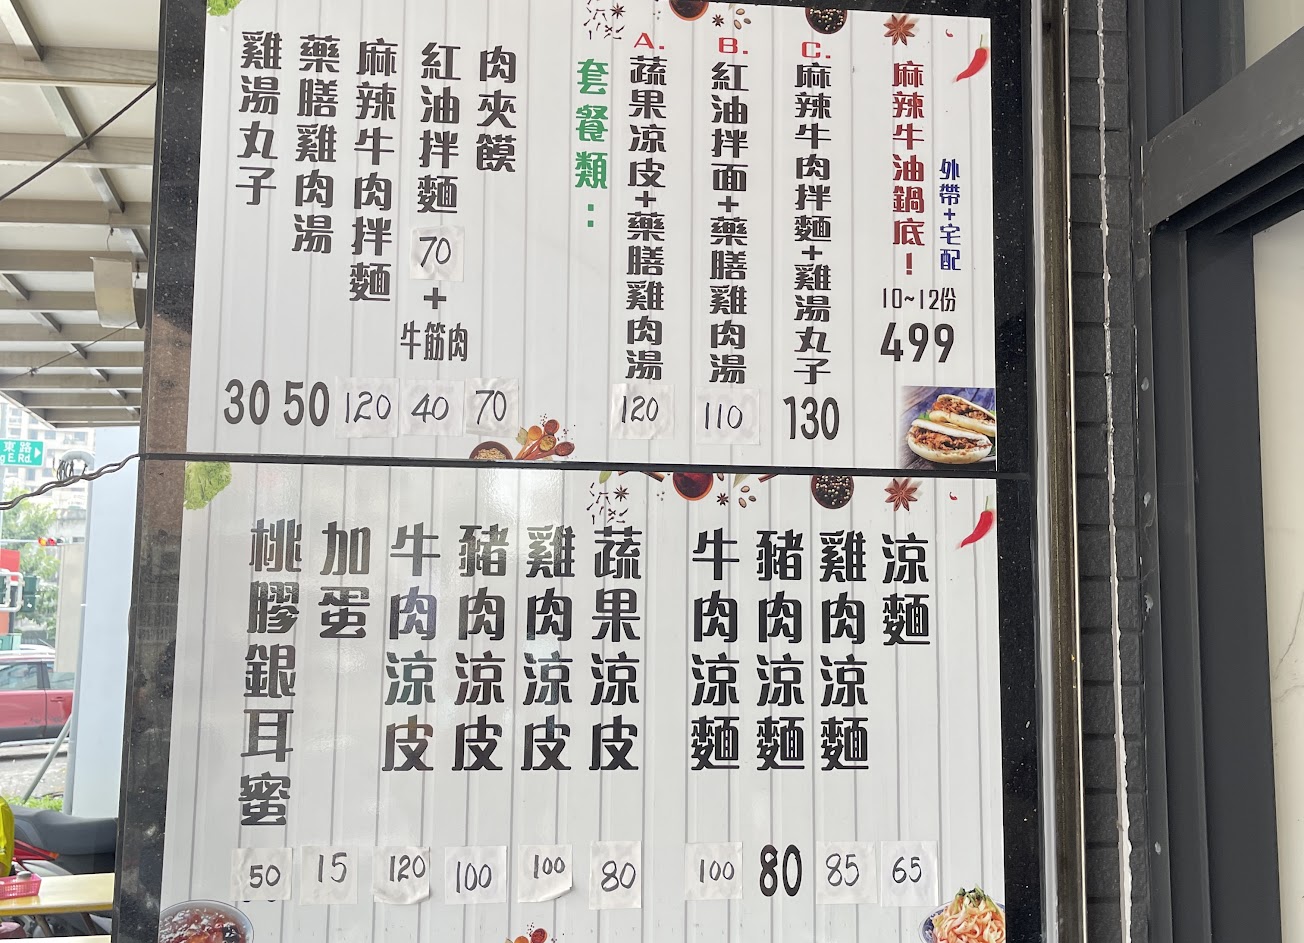 外帶+宅配
麻辣牛油鍋底！
10~12份
499
C.
麻辣牛肉拌麵+雞湯丸子
130
B.
紅油拌面+藥膳雞肉湯
110
A.
蔬果凉皮+藥膳雞肉湯
120
套餐類：
肉夾饃
70
紅油拌麵
70
+
牛筋肉
40
麻辣牛肉拌麵
120
藥膳雞肉湯
50
雞湯丸子
30
涼麵
65
雞肉涼麵
85
豬肉涼麵
80
牛肉涼麵
100
蔬果涼皮
80
雞肉涼皮
100
豬肉涼皮
100
牛肉涼皮
120
加蛋
15
桃膠銀耳蜜
50
東路
g E. Rd.